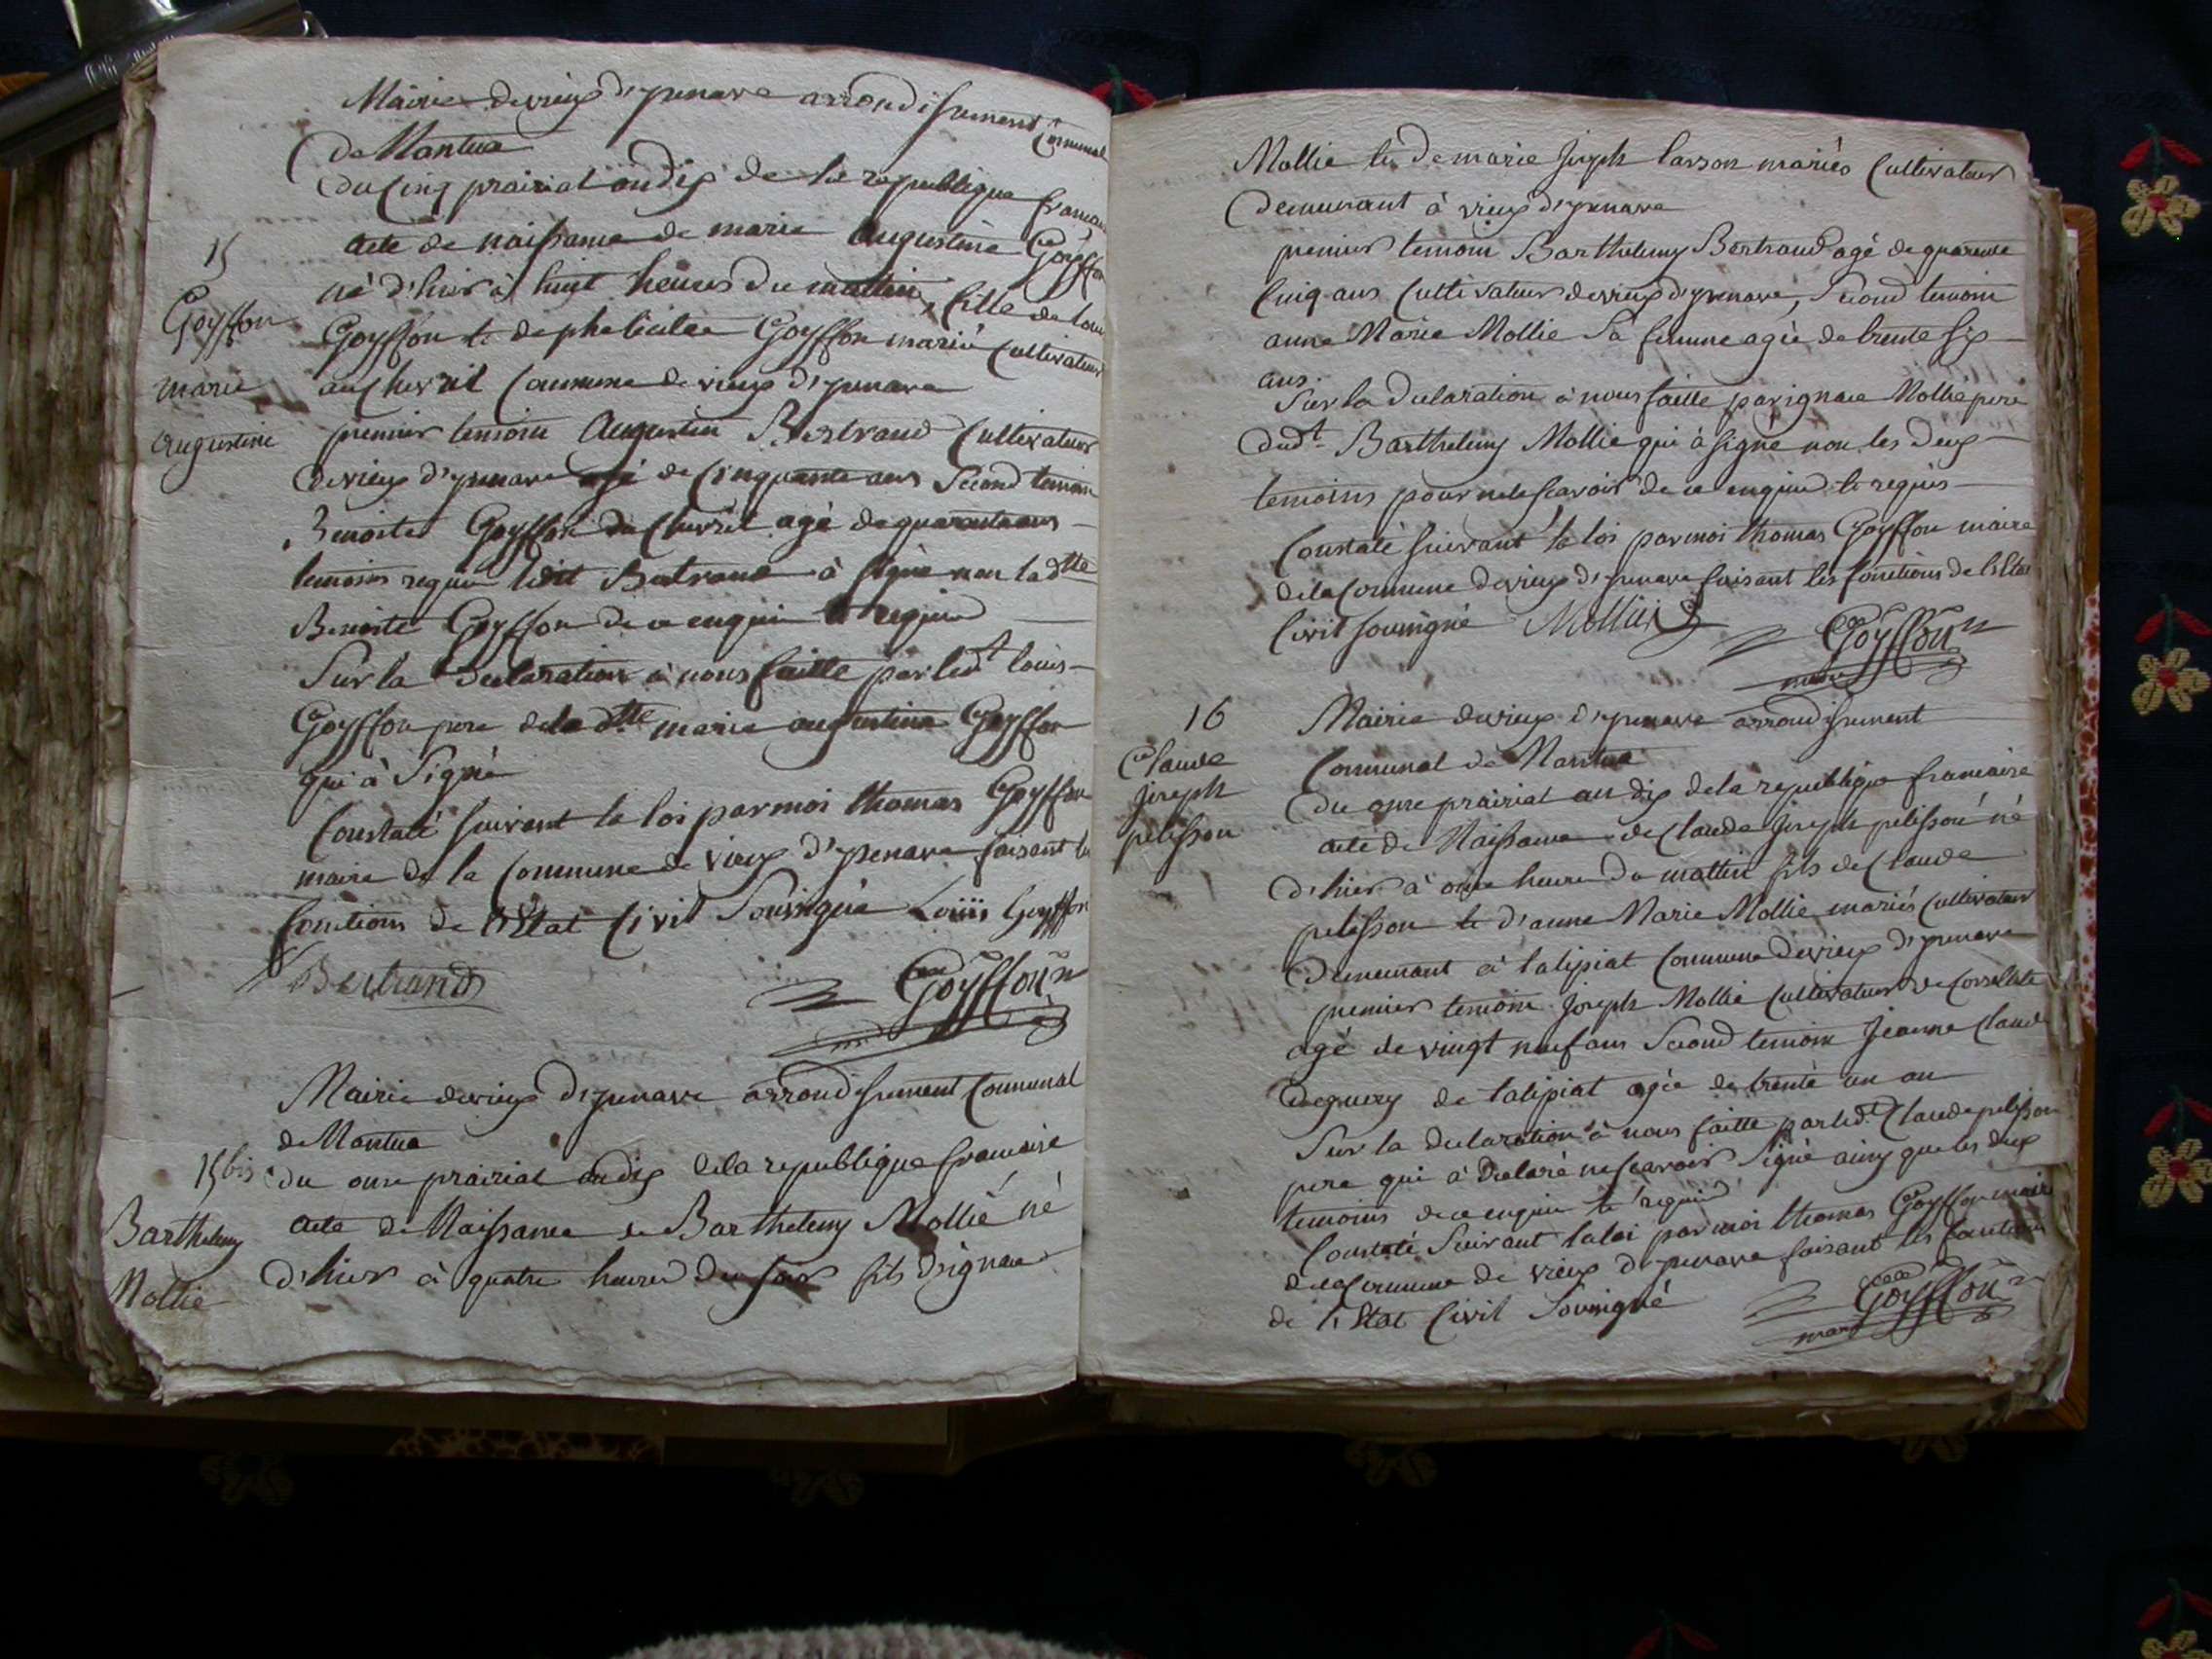 Mairie de vieux d'yzenave arrondissement Communal
De Nantua
du Cinq prairial an dix de la republique francaise
15
acte de naissance de marie Augustine Goyffon
Goyffon
né d'hier à huit heures du mattin, fille de louis
Goyffon et de phelicitee Goyffon marié Cultivateur
marie
au Chevril Commune de vieux d'yzenave
augustine
premier temoin Augustin Bertrand Cultivateur
de vieux d'yzenave agé de Cinquante ans Second temoin
Benoite Goyffon du Chevril agé de quarante ans
temoins requis ledit Bertrand à signé non la dtte
Benoite Goyffon de ce enquis et requise
Sur la Declaration à nous faitte par ledt louis
Goyffon pere de la dtte marie augustine Goyffon
qui à Signé
Constaté suivant la loi par moi thomas Goyffon
maire de la Commune de vieux d'yzenave faisant les
fonctions de l'Etat Civil Soussigné Louis Goyffon
Bertrand Goyffon
Mairie de vieux d'yzenave arrondissement Communal
de Nantua
15 bis du onze prairial an dix de la republique francaise
Barthelemy
acte de Naissance de Barthelemy Mollié né
d'hier à quatre heures du soir fils d'ignace
Mollie
Mollie et de marie Joseph larson mariés Cultivateur
Demeurant à vieux d'yzenave
premier temoin Barthelemy Bertrand agé de quarente
Cinq ans Cultivateur de vieux d'yzenave, Second temoin
anne Marie Mollie Sa femme agée de trente six
ans
Sur la Declaration à nous faitte par ignace Mollié pere
dudt Barthelemy Mollie qui à signé non les deux
temoins pour ne le scavoir de ce enquis et requis
Constaté suivant la loi par moi thomas Goyffon maire
de la Commune de vieux d'yzenave faisant les fonctions de l'Etat
Civil soussigné Mollié Goyffon
maire
16
Mairie de vieux d'yzenave arrondissement
Claude
Communal de Nantua
Joseph
Du onze prairial an dix de la republique francaise
pelisson
acte de Naissance de Claude Joseph pelisson né
d'hier à onze heure du mattin fils de Claude
pelisson et d'anne Marie Mollie mariés Cultivateur
Demeurant à talipiat Commune de vieux d'yzenave
premier temoin Joseph Mollie Cultivateur de
agé de vingt neuf ans Second temoin Jeanne Claude
de talipiat agée de trente un an
Sur la declaration à nous faitte par ledt Claude pelisson
pere qui à Declaré ne scavoir Signé ainsy que les deux
temoins de ce enquis et requis
Constaté Suivant la loi par moi thomas Goyffon maire
de la Commune de vieux d'yzenave faisant les fonctions
de l'Etat Civil Soussigné Goyffon
maire